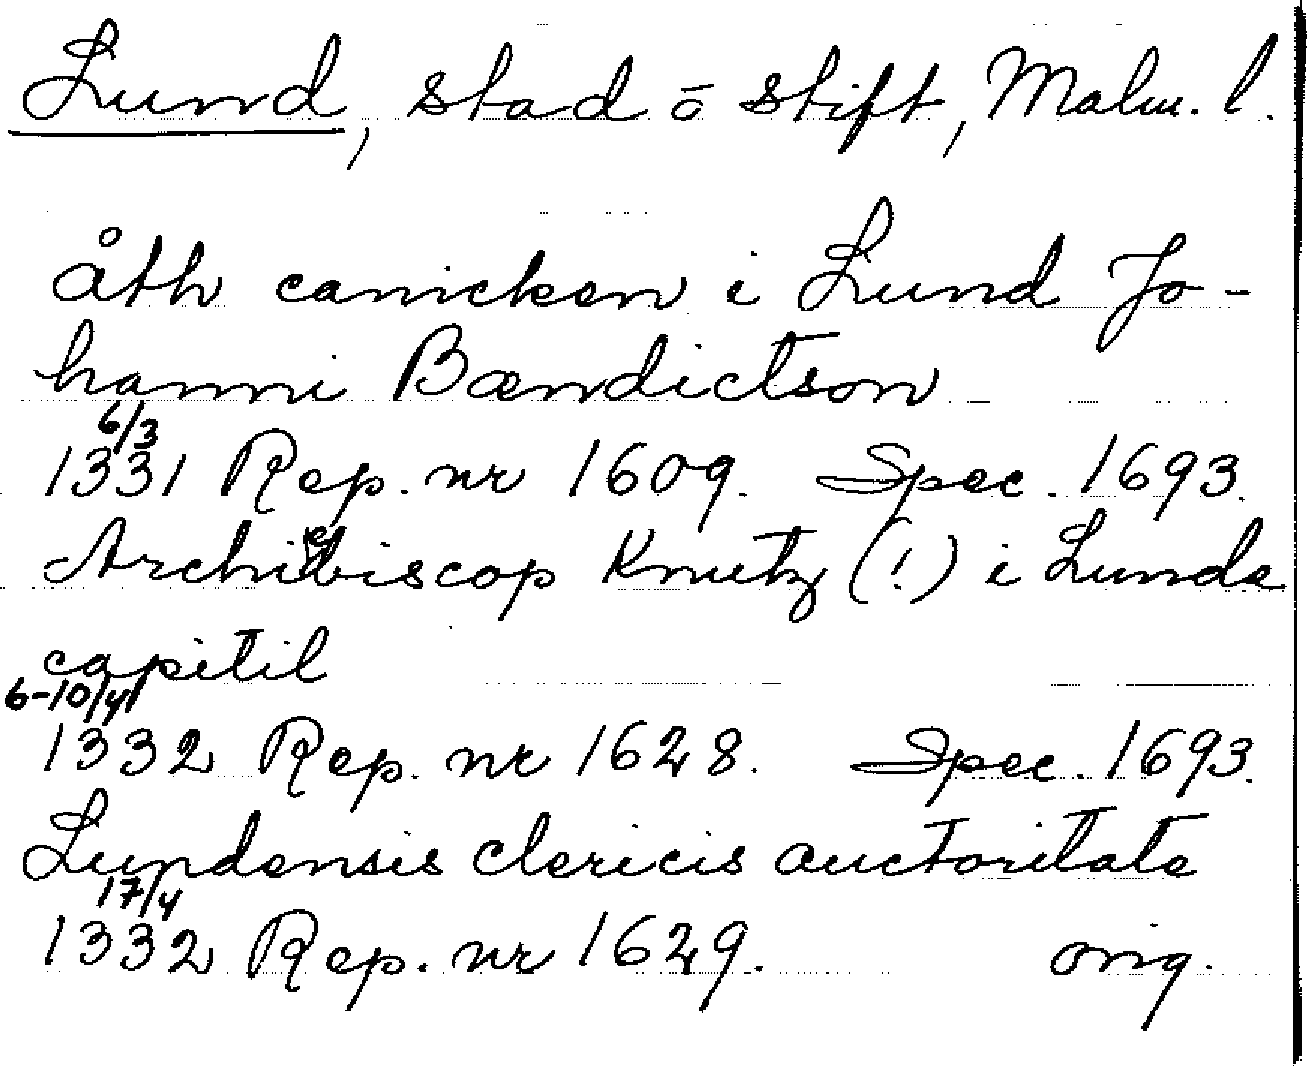 Lund, stad o stift, Malm. l.
åth canicken i Lund Jo-
hanni Bændictson
6/3
1331 Rep. nr 1609. Spec. 1693.
Archiebiscop Knutz (!) i Lunde
capitil
6-10/4
1332 Rep. nr 1628. Spec. 1693.
Lundensis clericis auctoritate
17/4
1332 Rep. nr 1629. orig.